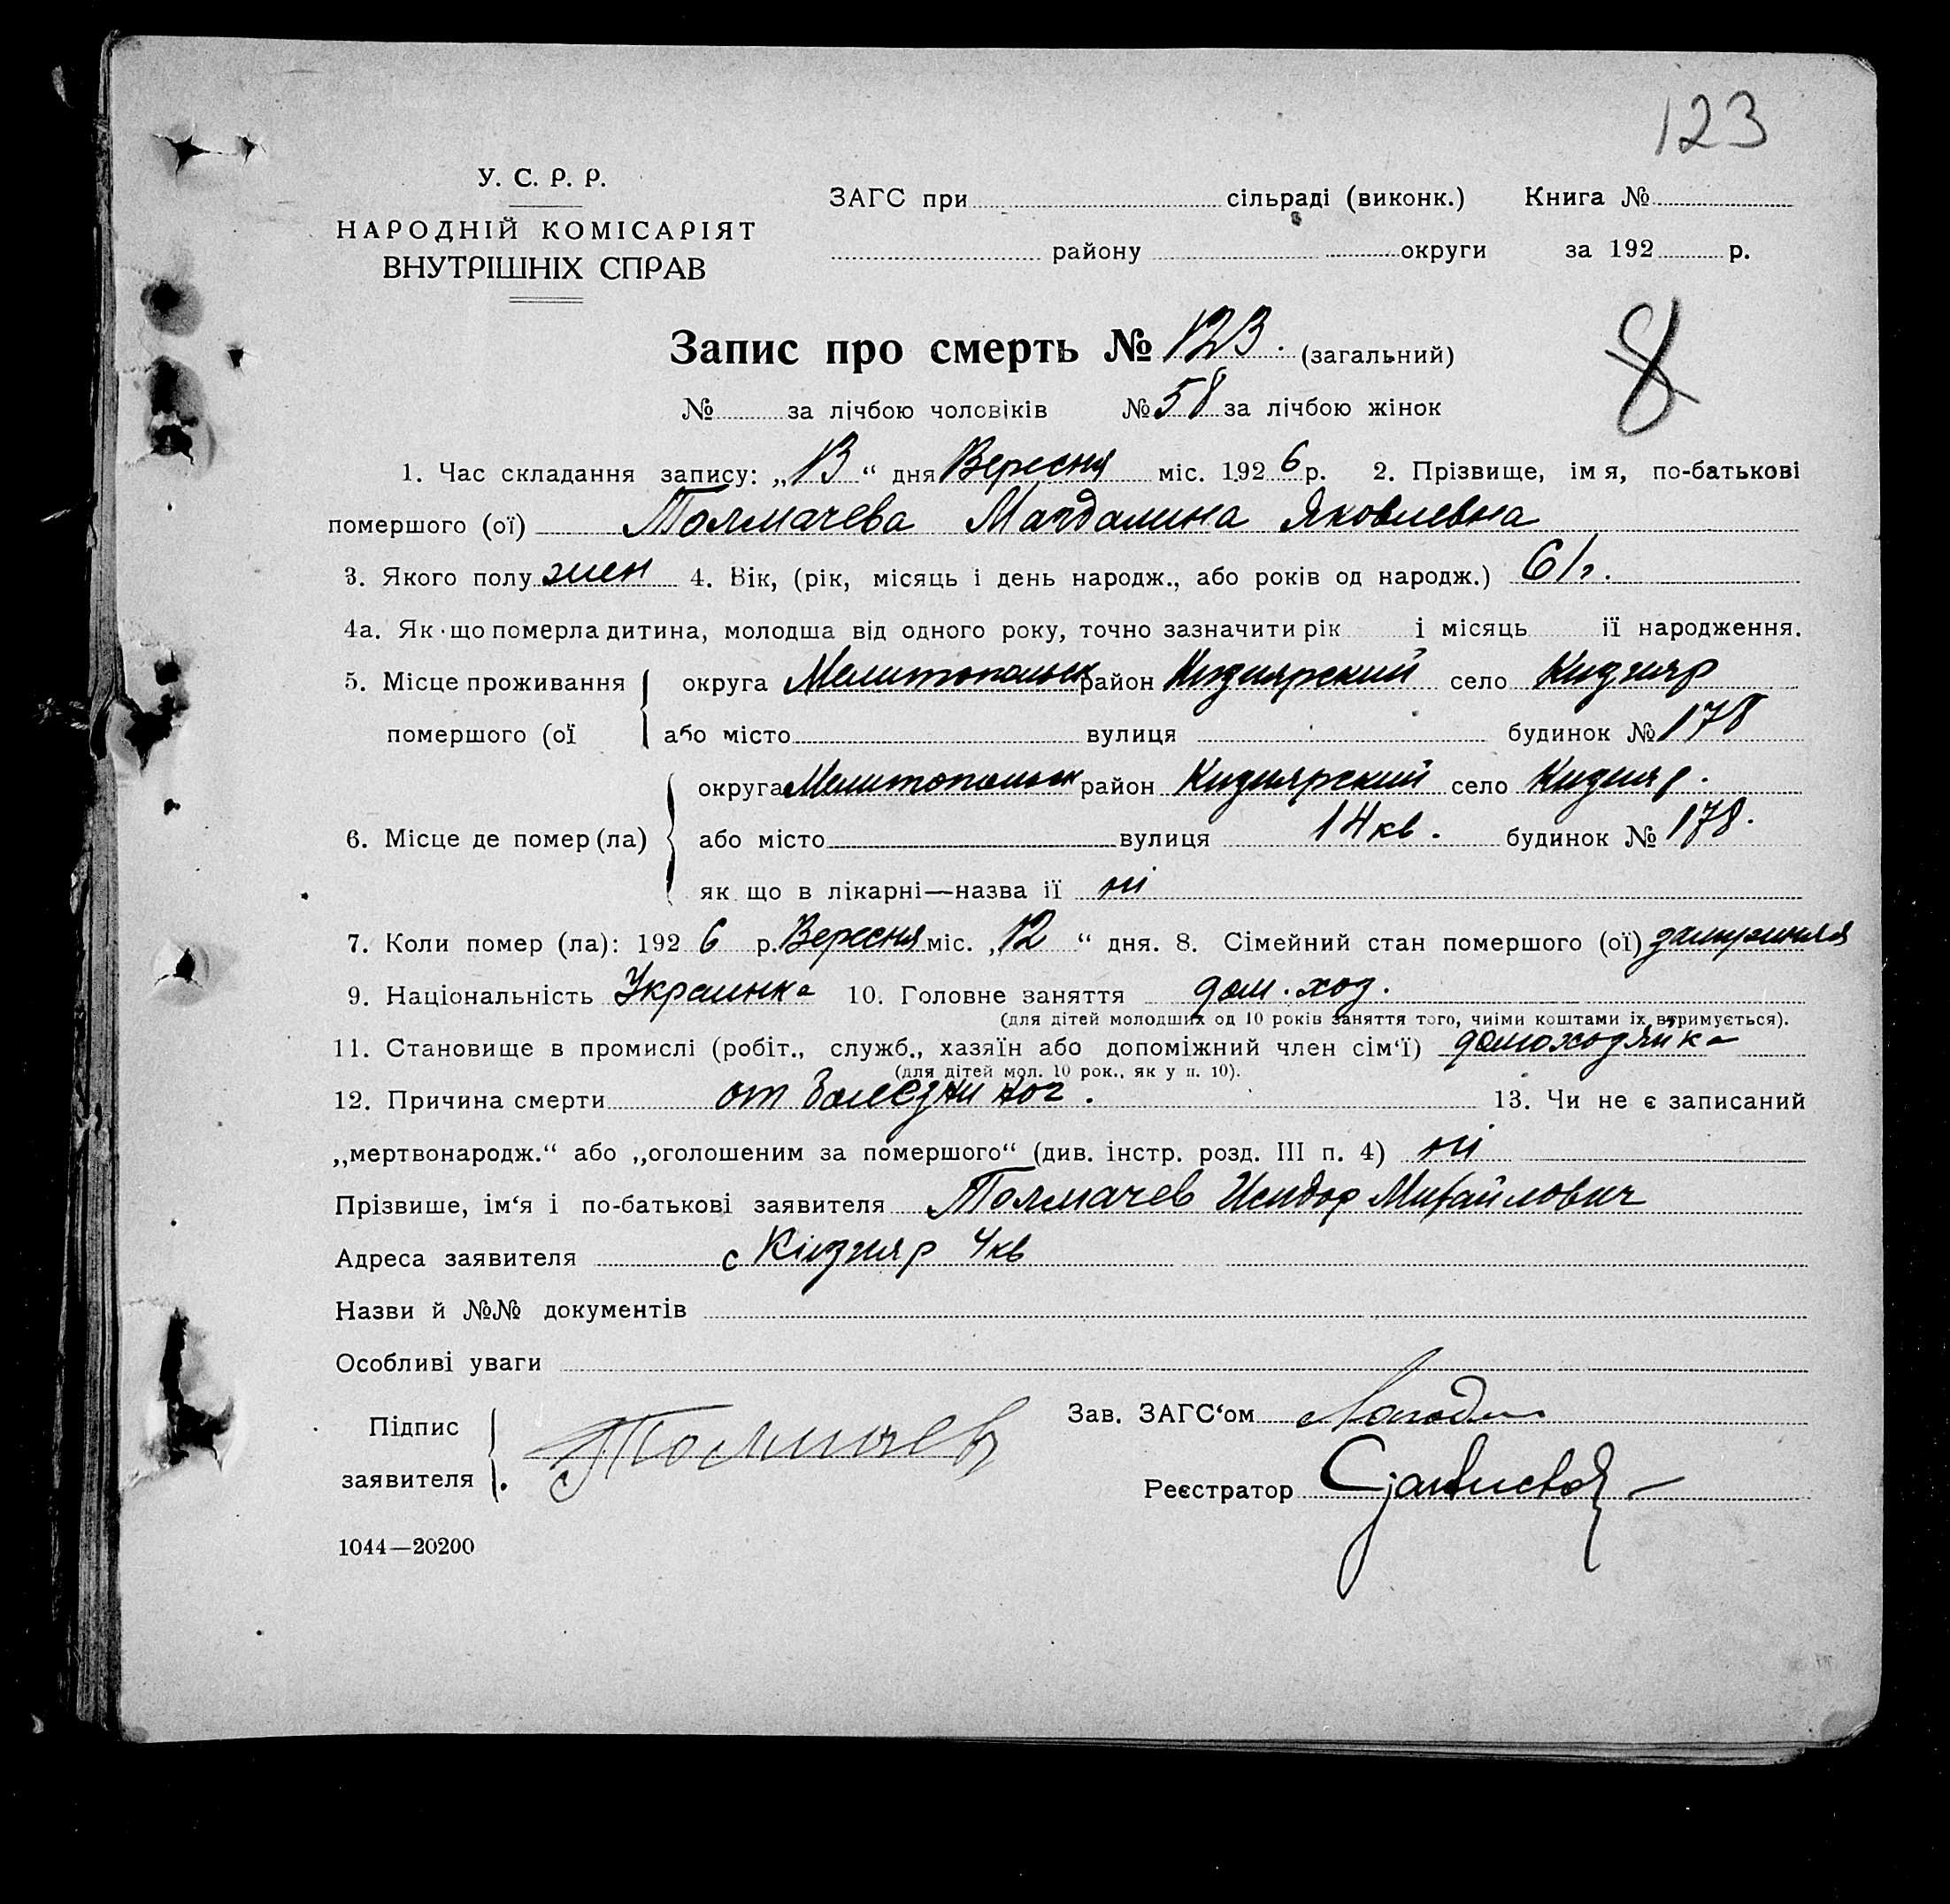 123
У. С. Р. Р.
НАРОДНІЙ КОМІСАРІЯТ
ВНУТРІШНІХ СПРАВ
ЗАГС при сільраді (виконк.) Книга №
району округи за 192 р.
Запис про смерть № 123. (загальний)
8
№ за лічбою чоловіків № 58 за лічбою жінок
1. Час складання запису: „13“ дня Вересня міс. 1926 р. 2. Прізвище, імя, по-батькові
помершого (ої) Толмачева Магдалина Яковлевна
3. Якого полу жен 4. Вік, (рік, місяць і день народж., або років од народж.) 61 г.
4а. Як-що померла дитина, молодша від одного року, точно зазначити рік і місяць її народження.
5. Місце проживання округа Мелитопольск район Кизиярский село Кизияр
помершого (ої або місто вулиця будинок № 178
округа Мелитопольск район Кизиярский село Кизияр.
6. Місце де помер (ла) або місто вулиця 14 кв. будинок № 178.
як що в лікарні—назва її ні
7. Коли помер (ла): 1926 р. Вересня міс. „12“ дня. 8. Сімейний стан помершого (ої) замужняя
9. Національність Украинка 10. Головне заняття дом. хоз.
(для дітей молодших од 10 років заняття того, чиіми коштами їх втримується).
11. Становище в промислі (робіт., служб., хазяїн або допоміжний член сім‘ї) домохозяйка
(для дітей мол. 10 рок., як у п. 10).
12. Причина смерти от болезни ног. 13. Чи не є записаний
„мертвонародж.“ або „оголошеним за помершого“ (див. інстр. розд. III п. 4) ні
Прізвише, ім‘я і по-батькові заявителя Толмачев Исидор Михайлович
Адреса заявителя с Кизияр 4 кв
Назви й №№ документів
Особливі уваги
Підпис
заявителя Толмачев
Зав. ЗАГС‘ом
Реєстратор
1044—20200